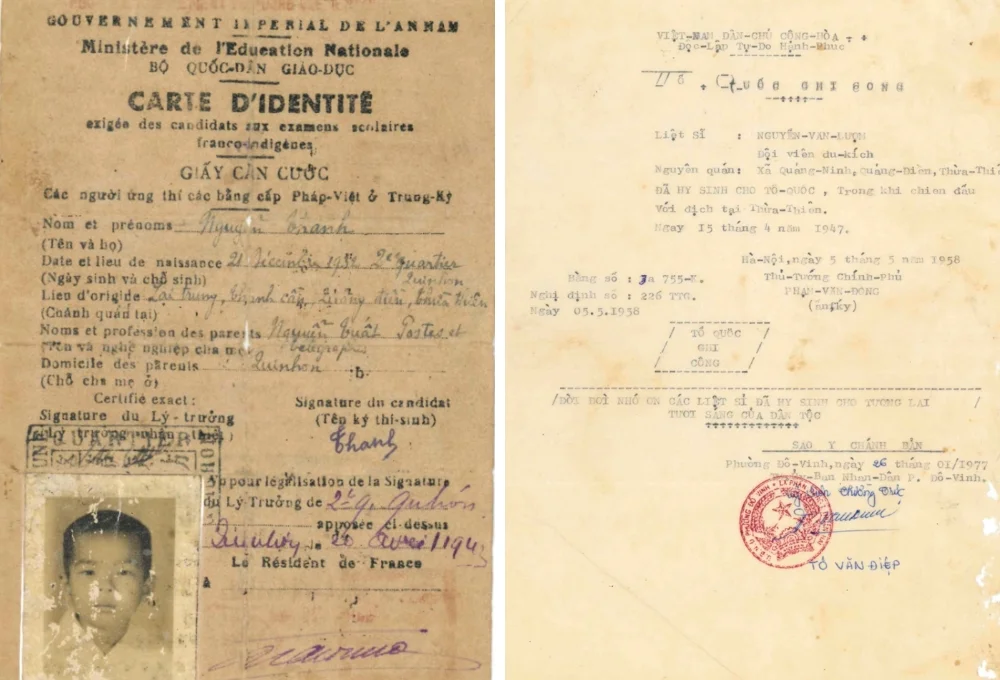 GOUVERNEMENT IMPERIAL DE L'ANNAM
Ministère de l'Education Nationale
BỘ QUỐC-DÂN GIÁO-DỤC
CARTE D'IDENTITÉ
exigée des candidats aux examens scolaires
franco-indigènes
GIẤY CĂN CƯỚC
Các người ứng thí các bằng cấp Pháp-Việt ở Trung-Kỳ
Nom et prénoms Nguyễn Thanh
(Tên và họ)
Date et lieu de naissance 21 Décembre 2e quartier
(Ngày sinh và chỗ sinh) Quinhon
Lieu d'origine Lai trung,
(Chánh quán tại)
Noms et profession des parents Nguyễn Postes et
(Tên và nghề nghiệp cha mẹ)
Domicile des parents Quinhon
(Chỗ cha mẹ ở)
Certifié exact :
Signature du Lý-trưởng
(Lý trưởng nhận thiệt)
Signature du candidat
(Tên ký thí-sinh)
Thanh
QUARTIER
Vu pour légalisation de la Signature
du Lý-Trưởng de 2e q. Quinhon
apposée ci-dessus
le 26 Avril
Le Résident de France
à
VIỆT-NAM DÂN-CHỦ CỘNG-HÒA
Độc-Lập Tự-Do Hạnh-Phúc
TỔ QUỐC GHI CONG
Liệt Sĩ : NGUYỄN-VĂN-LƯỢM
Đội viên du-kích
Nguyên quán: Xã Quảng-Ninh,Quảng-Điền,Thừa-Thiê
ĐÃ HY SINH CHO TỔ-QUỐC , Trong khi chien đấu
Với địch tại Thừa-Thiên.
Ngày 15 tháng 4 năm 1947.
Hà-Nội,ngày 5 tháng 5 năm 1958
Bảng số : 3a 755-K. Thủ-Tướng Chính-Phủ
Nghị định số : 226 TTG. PHẠM-VĂN-ĐỒNG
Ngày 05.5.1958 (ấn ký)
TỔ QUỐC
GHI
CÔNG
/ĐỜI ĐỜI NHỚ ƠN CÁC LIỆT SĨ ĐÃ HY SINH CHO TƯƠNG LAI /
TƯƠI SÁNG CỦA DÂN TỘC
SAO Y CHÁNH BẢN
Phường Đô-Vinh,ngày 26 tháng 01/1977
Ủy-Ban Nhân-Dân P. Đô-Vinh.
Thường Trực
TÔ VĂN ĐIỆP